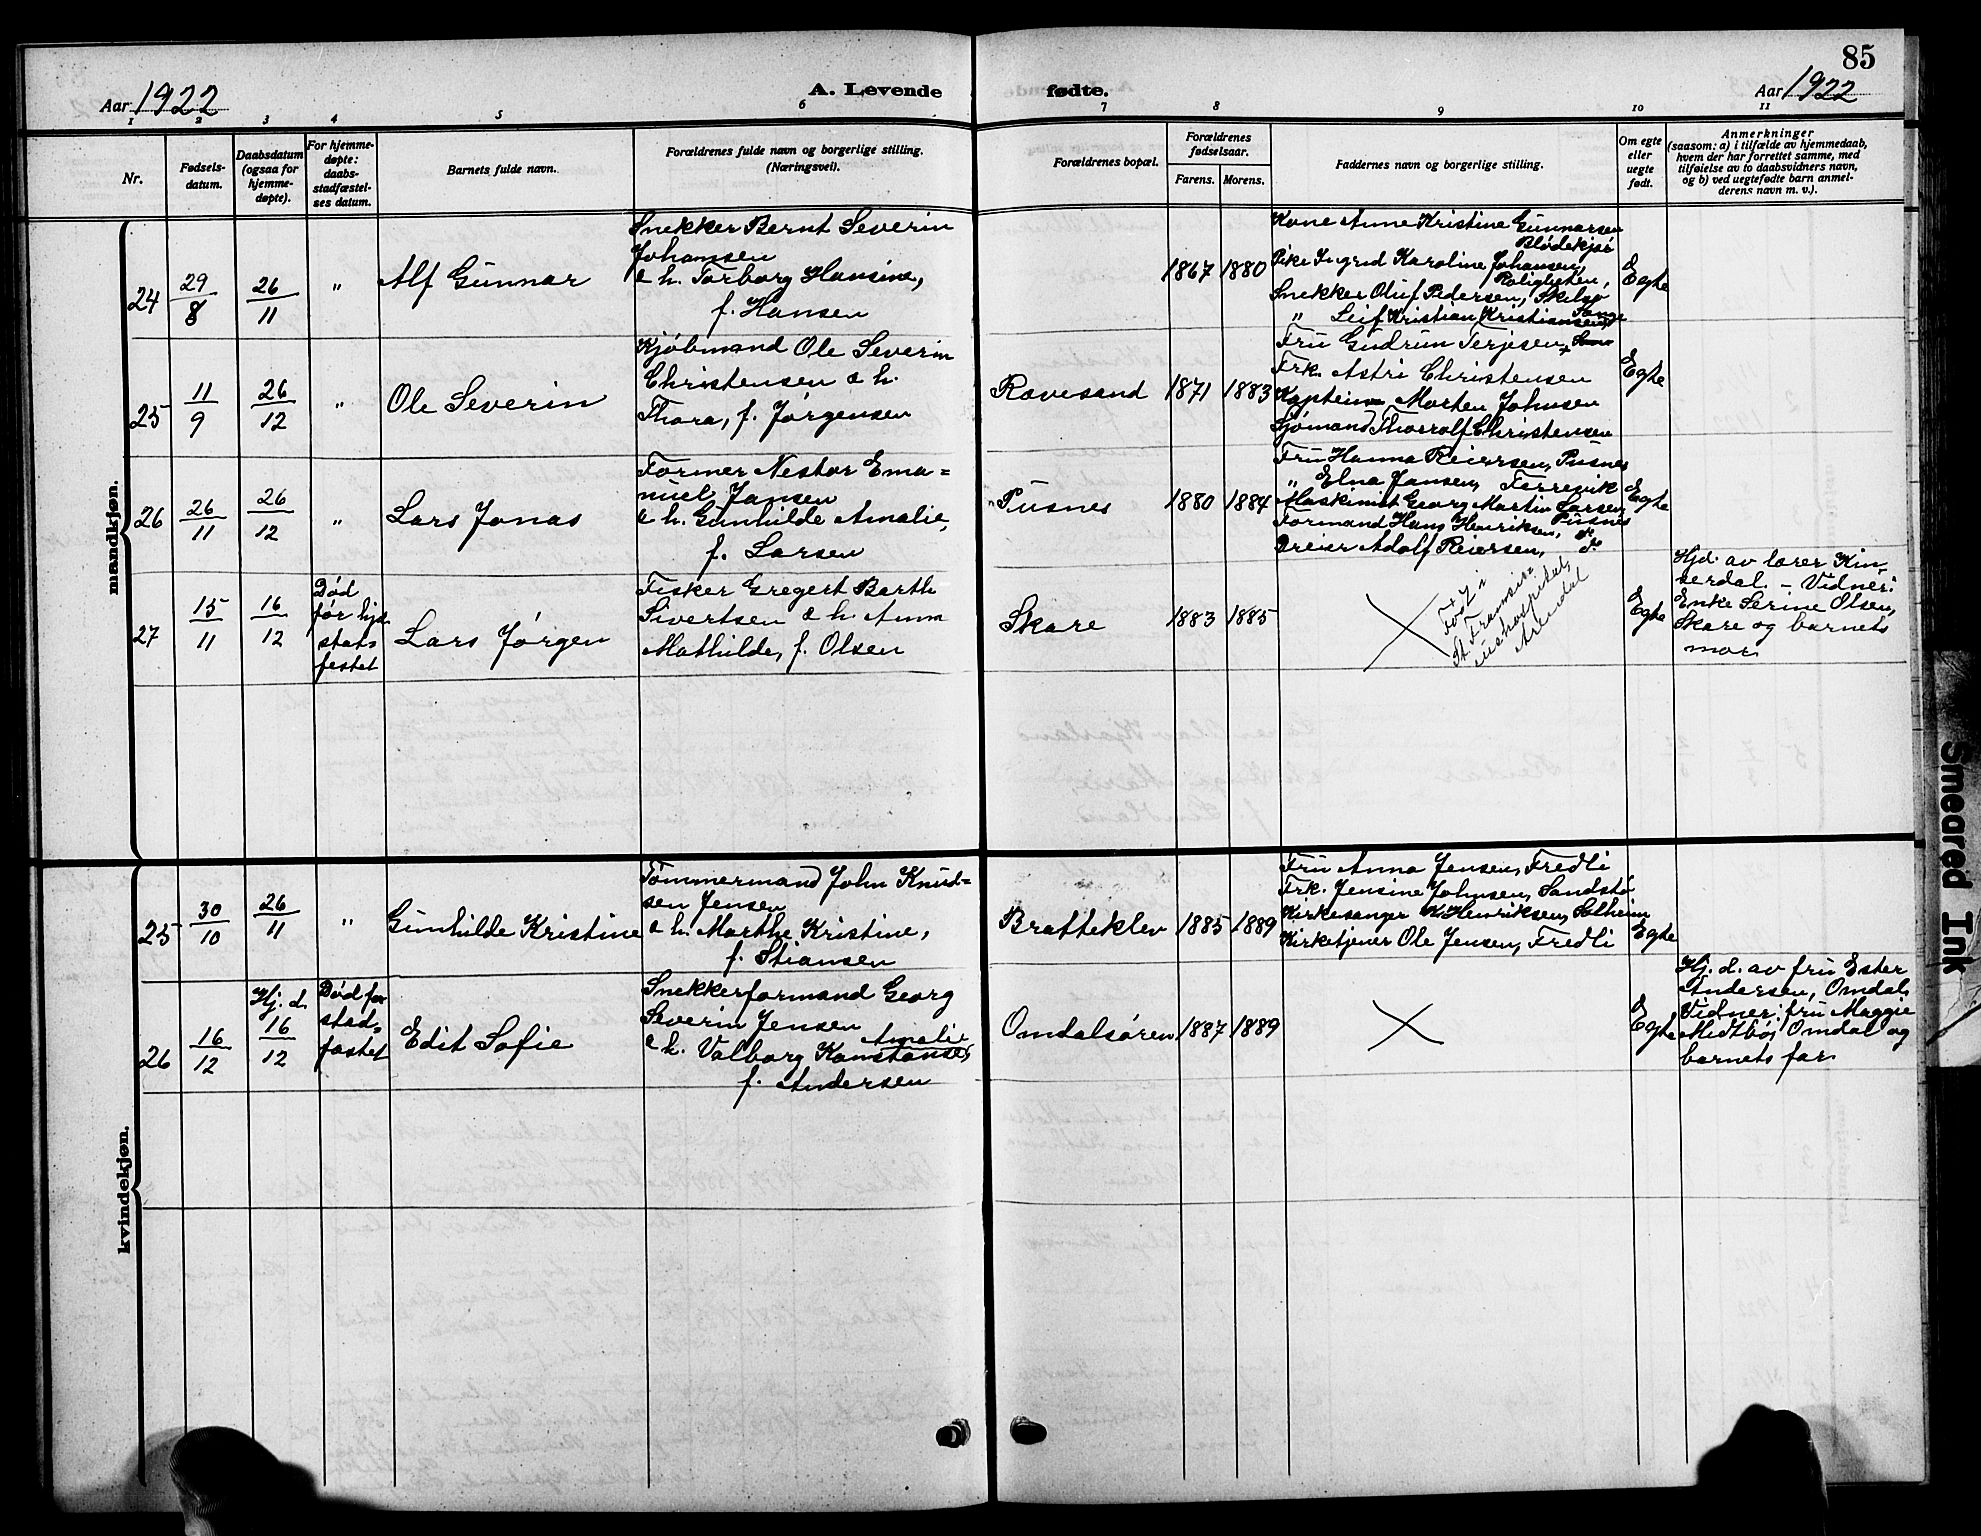 85
Aar 1922
A. Levende
fødte.
Aar 1922
1 2 3 4 5 6 7 8 9 10 11
Nr.
Fødsels-
datum.
Daabsdatum
(ogsaa for
hjemme-
døpte).
For hjemme-
døpte:
daabs-
stadfæstel-
ses datum.
Barnets fulde navn.
Forældrenes fulde navn og borgerlige stilling.
(Næringsvei).
Forældrenes bopæl.
Forældrenes
fødselsaar.
Farens. Morens.
Faddernes navn og borgerlige stilling.
Om egte
eller
uegte
født.
Anmerkninger
(saasom: a) i tilfælde av hjemmedaab,
hvem der har forrettet samme, med
tilføielse av to daabsvidners navn,
og b) ved uegtefødte barn anmel-
derens navn m. v.).
mandkjøn.
24
29/8
26/11
"
Alf Gunnar
Snekker Bernt Severin
Johansen
& h. Torborg Hansine,
f. Hansen
1867 1880
Kone Anne Kristine Gunnarsen
Blødekjær
Pike Ingrid Karoline Johansen,
Roligheden,
Snekker Oluf Pedersen, Skilsø
" Leif Kristian Kristiansen,
Egte
25
11/9
26/12
"
Ole Severin
Kjøbmand Ole Severin
Christensen & h.
Thora, f. Jørgensen
Revesand
1871 1883
Fru Gudrun Terjesen,
Frk. Astri Christensen
Kaptein Morten Johnsen
Sjømand Thorolf Christensen
Egte
26
26/11
26/12
"
Lars Jonas
Former Nestor Ema=
nuel Jansen
& h. Gunhilde Amalie,
f. Larsen
Pusnes
1880 1884
Fru Hanna Reiersen, Pusnes
" Elna Jansen, Færevik
Maskinist Georg Martin Larsen,
Pusnes
Formand Hans Henriksen, do
Dreier Adolf Reiersen, do
Egte
27
15/11
16/12
Død
før hjd.
stad-
festet
Lars Jørgen
Fisker Gregert Barth
Sivertsen & h. Anna
Mathilde, f. Olsen
Skare
1883 1885
Født i
St. Fransis=
cushospitel,
Arendal
Egte
Hjd. av lærer Kin-
serdal. – Vidner:
Enke Serine Olsen,
Skare og barnets
mor.
kvindekjøn.
25
30/10
26/11
"
Gunhilde Kristine
Tømmermand John Knud=
sen Jensen
& h. Marthe Kristine,
f. Stiansen
Bratteklev
1885 1889
Fru Anna Jensen, Fredli
Frk. Jensine Johnsen, Sandstø
Kirkesanger K. Henriksen, Solheim
Kirketjener Ole Jensen, Fredli
Egte
26
16/12
Hj. d.
16/12
Død før
stad-
fæstet
Edit Sofie
Snekkerformand Georg
Severin Jensen
Amalie
& h. Valborg Konstanse,
f. Andersen
Omdalsøren
1887 1889
Egte
Hj. d. av fru Ester
Andersen, Omdal.
Vidner: fru Maggie
Midtbø, Omdal og
barnets far.
Smeared Ink